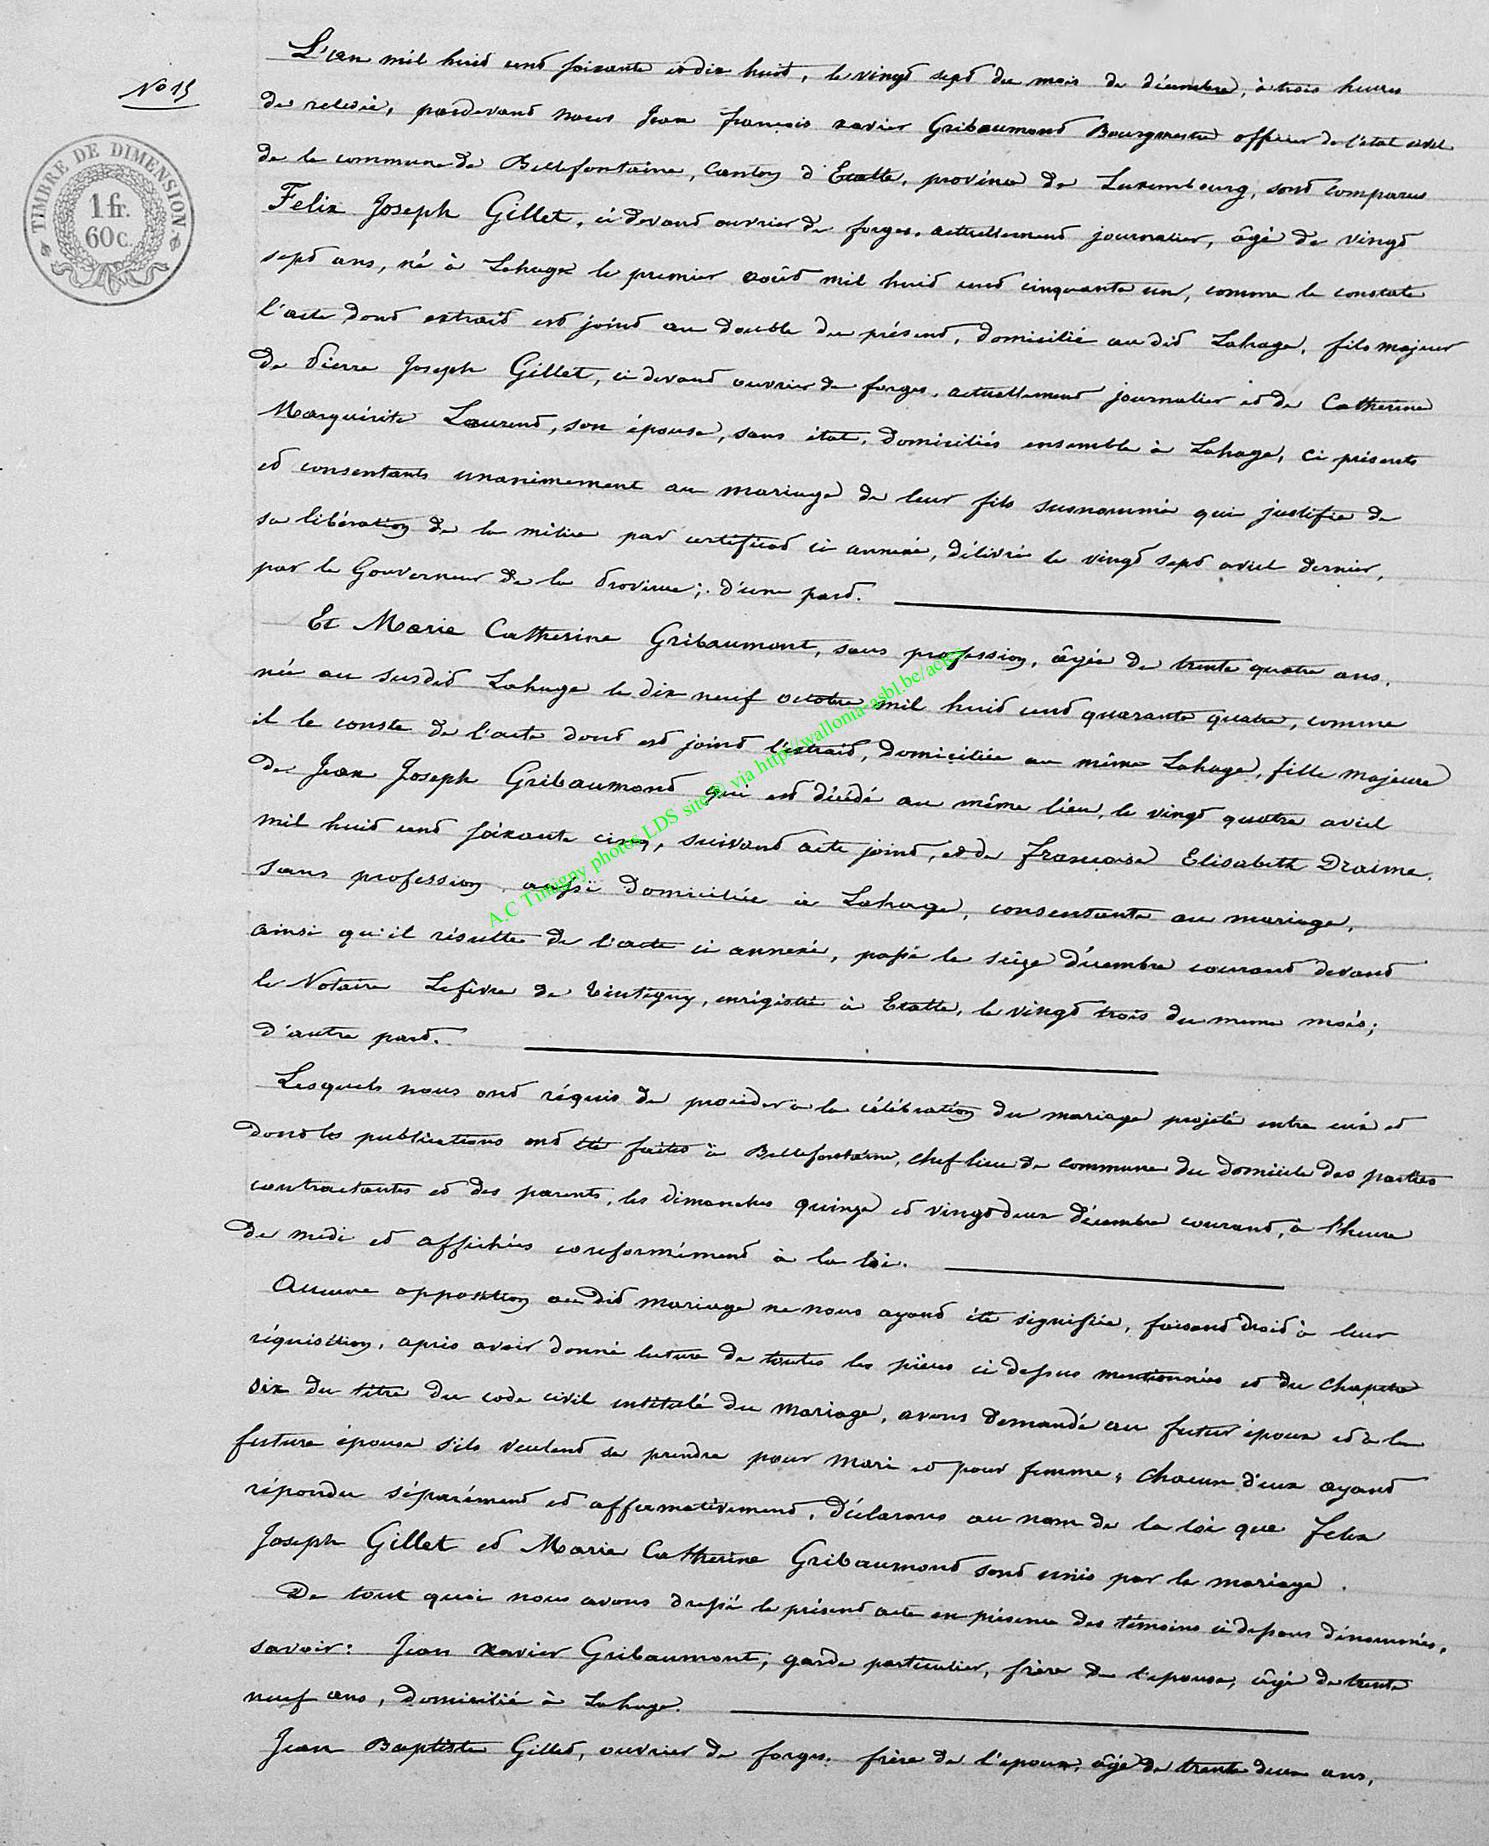 No 15
TIMBRE DE DIMENSION
1 fr.
60 c.
L'an mil huit cent soixante et dix huit, le vingt sept du mois de décembre, à trois heures
de relevée, pardevant nous Jean François Xavier Gribaumont Bourgmestre officier de l'état civil
de la commune de Bellefontaine, Canton d'Etalle, province de Luxembourg, sont comparus
Felix Joseph Gillet, ci devant ouvrier de forges, actuellement journalier, âgé de vingt
sept ans, né à Lahage le premier août mil huit cent cinquante un, comme le constate
l'acte dont extrait est joint au double du présent, domicilié au dit Lahage, fils majeur
de Pierre Joseph Gillet, ci devant ouvrier de forges, actuellement journalier et de Catherine
Marguérite Laurent, son épouse, sans état, domiciliés ensemble à Lahage, ci présents
et consentants unanimement au mariage de leur fils susnommé qui justifie de
sa libération de la milice par certificat ci annexé, délivré le vingt sept avril dernier,
par le Gouverneur de la Province; d'une part.
Et Marie Catherine Gribaumont, sans profession, âgée de trente quatre ans,
née au susdit Lahage le dix neuf octobre mil huit cent quarante quatre, comme
il le conste de l'acte dont est joint l'extrait, domiciliée au même Lahage, fille majeure
de Jean Joseph Gribaumont qui est décédé au même lieu, le vingt quatre avril
mil huit cent soixante cinq, suivant acte joint, et de Françoise Elisabeth Draime,
sans profession, aussi domiciliée à Lahage, consentante au mariage,
ainsi qu'il résulte de l'acte ci annexé, passé le seize décembre courant devant
le Notaire Lefèvre de Tintigny, enrégistré à Etalle, le vingt trois du meme mois;
d'autre part.
Lesquels nous ont réquis de procéder à la célébration du mariage projeté entre eux et
dont les publications ont été faites à Bellefontaine, chef lieu de commune du domicile des parties
contractantes et des parents, les dimanches quinze et vingt deux décembre courant, à l'heure
de midi et affichées conformément à la loi.
Aucune opposition au dit mariage ne nous ayant été signifiée, faisant droit à leur
réquisition, après avoir donné lecture de toutes les pièces ci dessus mentionnées et du chapitre
six du titre du code civil intitulé du Mariage, avons demandé au futur époux et à la
future épouse s'ils veulent se prendre pour mari et pour femme; chacun d'eux ayant
répondu séparément et affirmativement, déclarons au nom de la loi que Felix
Joseph Gillet et Marie Catherine Gribaumont sont unis par le mariage.
De tout quoi nous avons dressé le présent acte en présence des témoins ci dessous dénommés,
savoir: Jean Xavier Gribaumont, garde particulier, frère de l'epouse, âgé de trente
neuf ans, domicilié à Lahage.
Jean Baptiste Gillet, ouvrier de forges, frère de l'epoux, âgé de trente deux ans,
A.C Tintigny photos LDS site @ via http://wallonia-asbl.be/actes